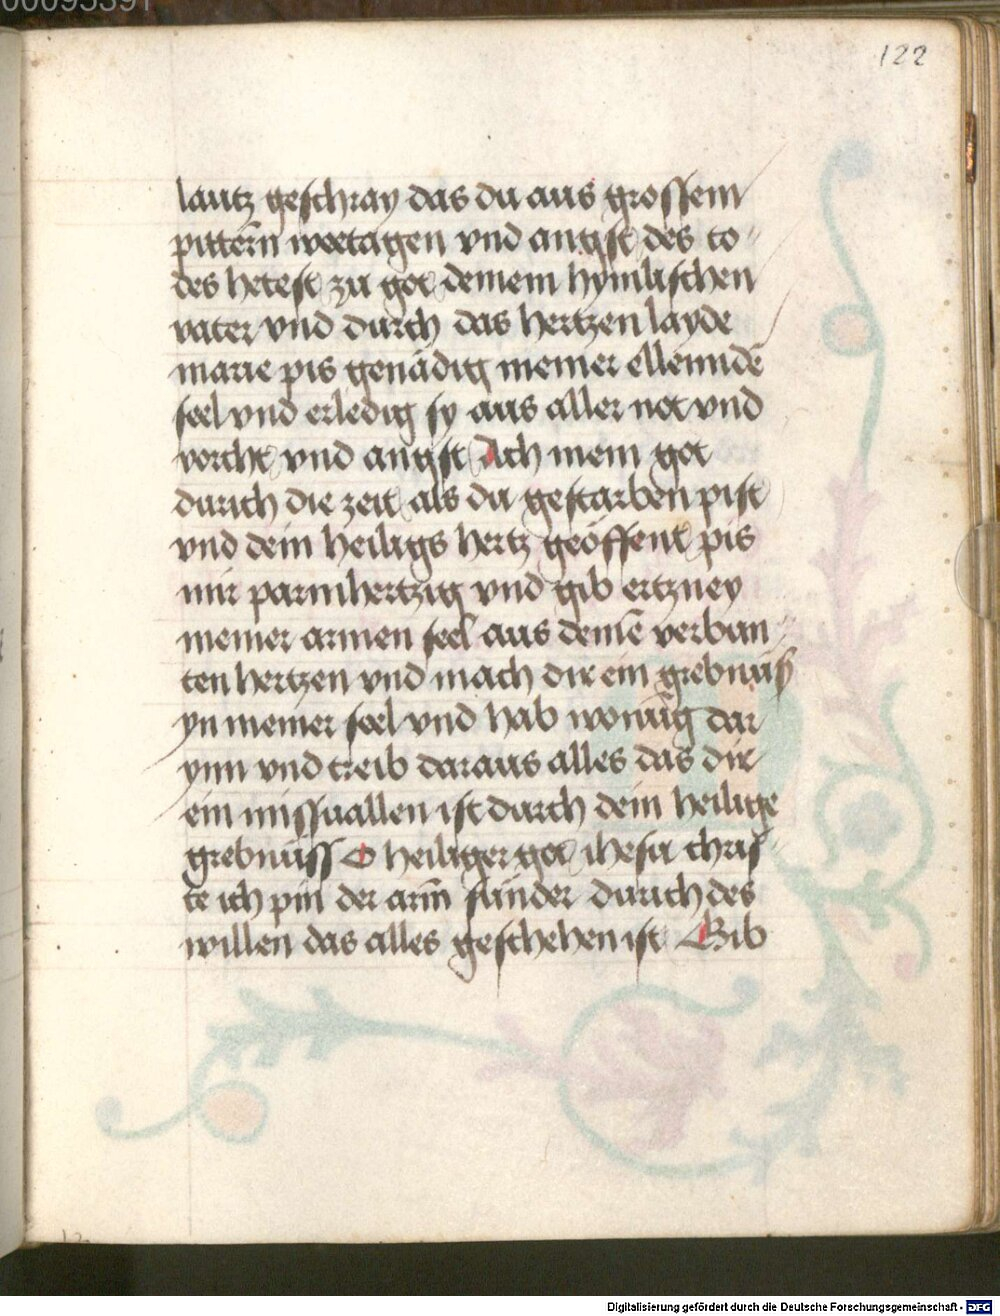 122
lautz geschray das du aus grossem
pittern̄ weetagen vnd angst des to〃
des hetest zu got deinem hymlischen
vater vnd durch das hertzen layde
marie pis genädig meiner elleinndē
seel vnd erledig sy aus aller not vnd
vorcht vnd angst Ach mein got
durich die zeit als du gestarben pist
vnd dein heiligs hertz geöffent pis
mir parmhertzig vnd gib ertzney
meiner armen seel aus deinē verbun〃
ten hertzen vnd mach dir ein grebnüß
yn meiner seel vnd hab wonūg dar
ynn vnd treib daraus alles das dir
ein missuallen ist durch dein heilige
grebnüss O heiliger got ihesu chris〃
te ich pin der arm̄ sünder durich des
willen das alles geschehen ist Gib
Digitalisierung gefördert durch die Deutsche Forschungsgemeinschaft - DFG